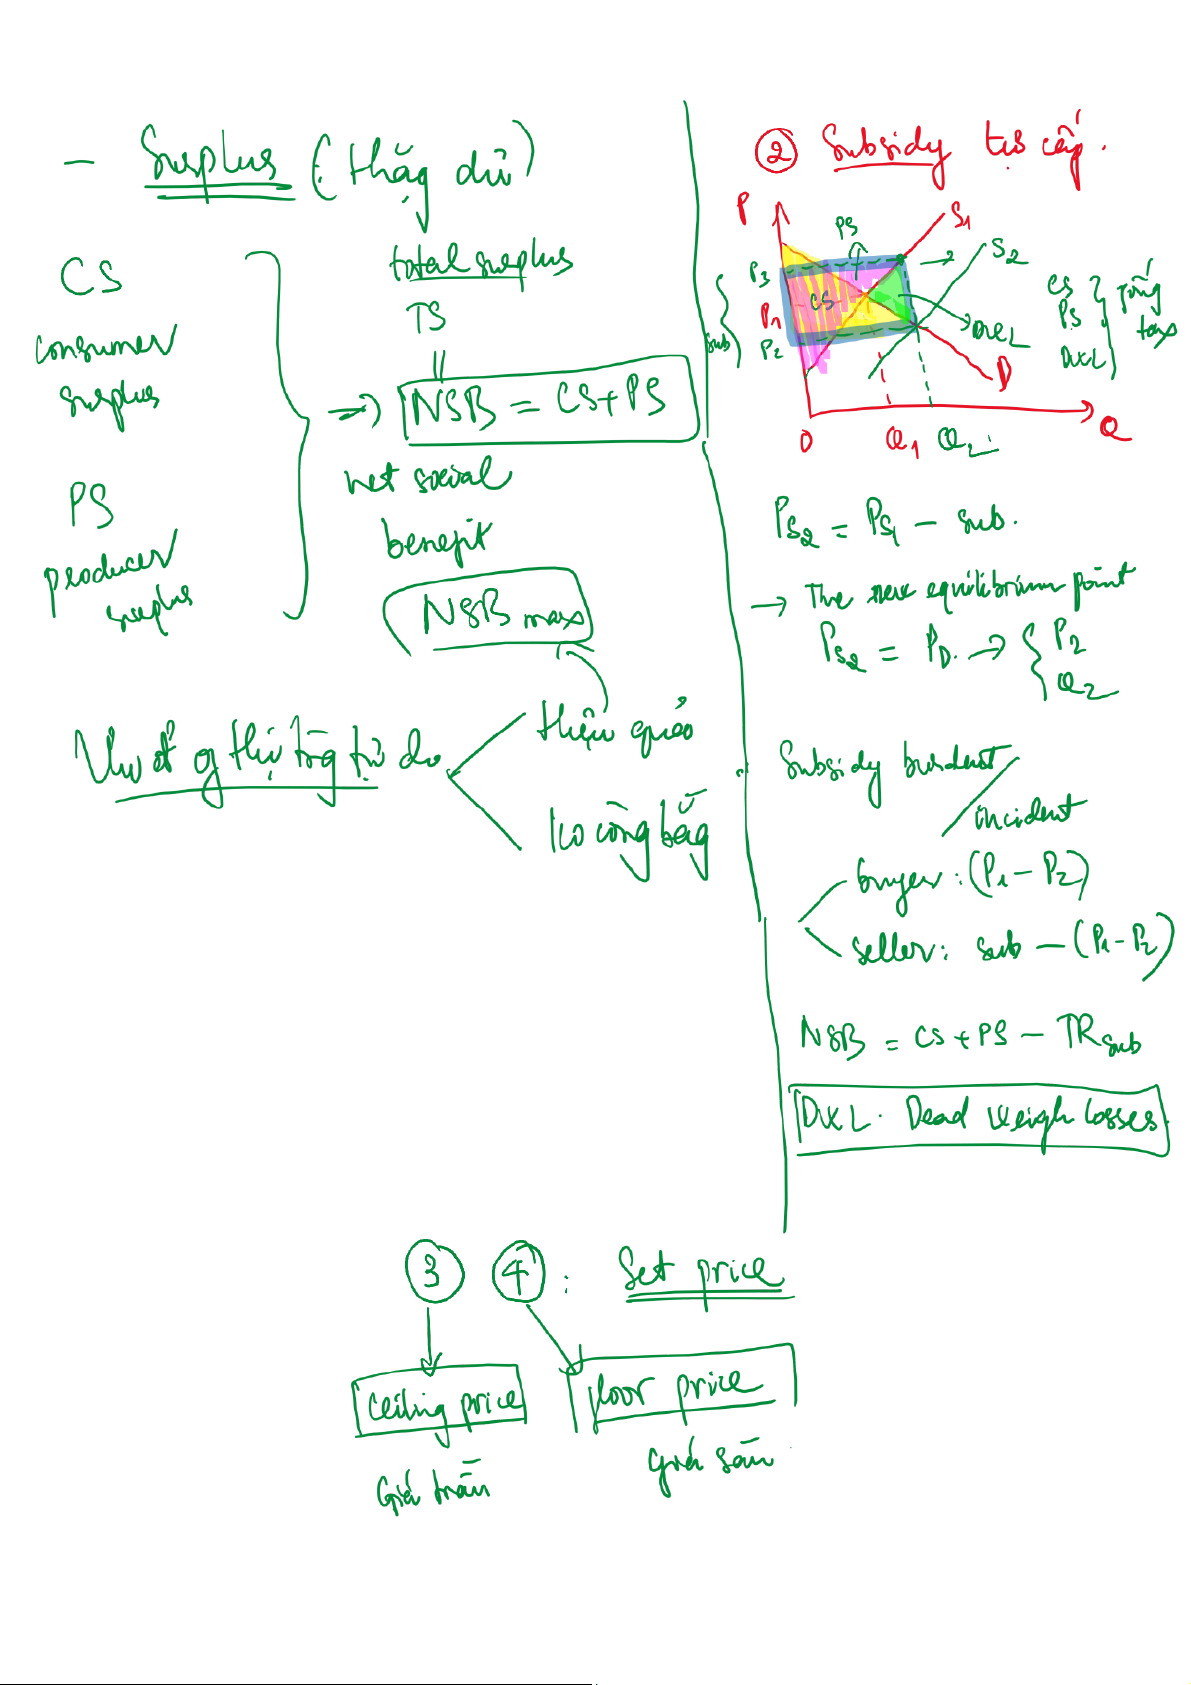 - Surplus (thặng dư)
total surplus
TS
||
CS
consumer
surplus
PS
producer
surplus
→ NSB = CS + PS
net social
benefit
NSB max
thị trường tự do
hiệu quả
ko công bằng
② Subsidy trợ cấp.
P
PS
S1
S2
P3
P1
P2
sub
CS
DWL
D
O
Q1
Q2
Q
CS
PS
DWL
giống
tax
Ps2 = Ps1 - sub.
→ The new equilibrium point
Ps2 = PD → { P2
Q2
Subsidy burden
incident
buyer: (P1 - P2)
seller: sub - (P1 - P2)
NSB = CS + PS - TR sub
DWL. Dead Weigh Losses
③ ④ : Set price
ceiling price
floor price
Giá trần
giá sàn